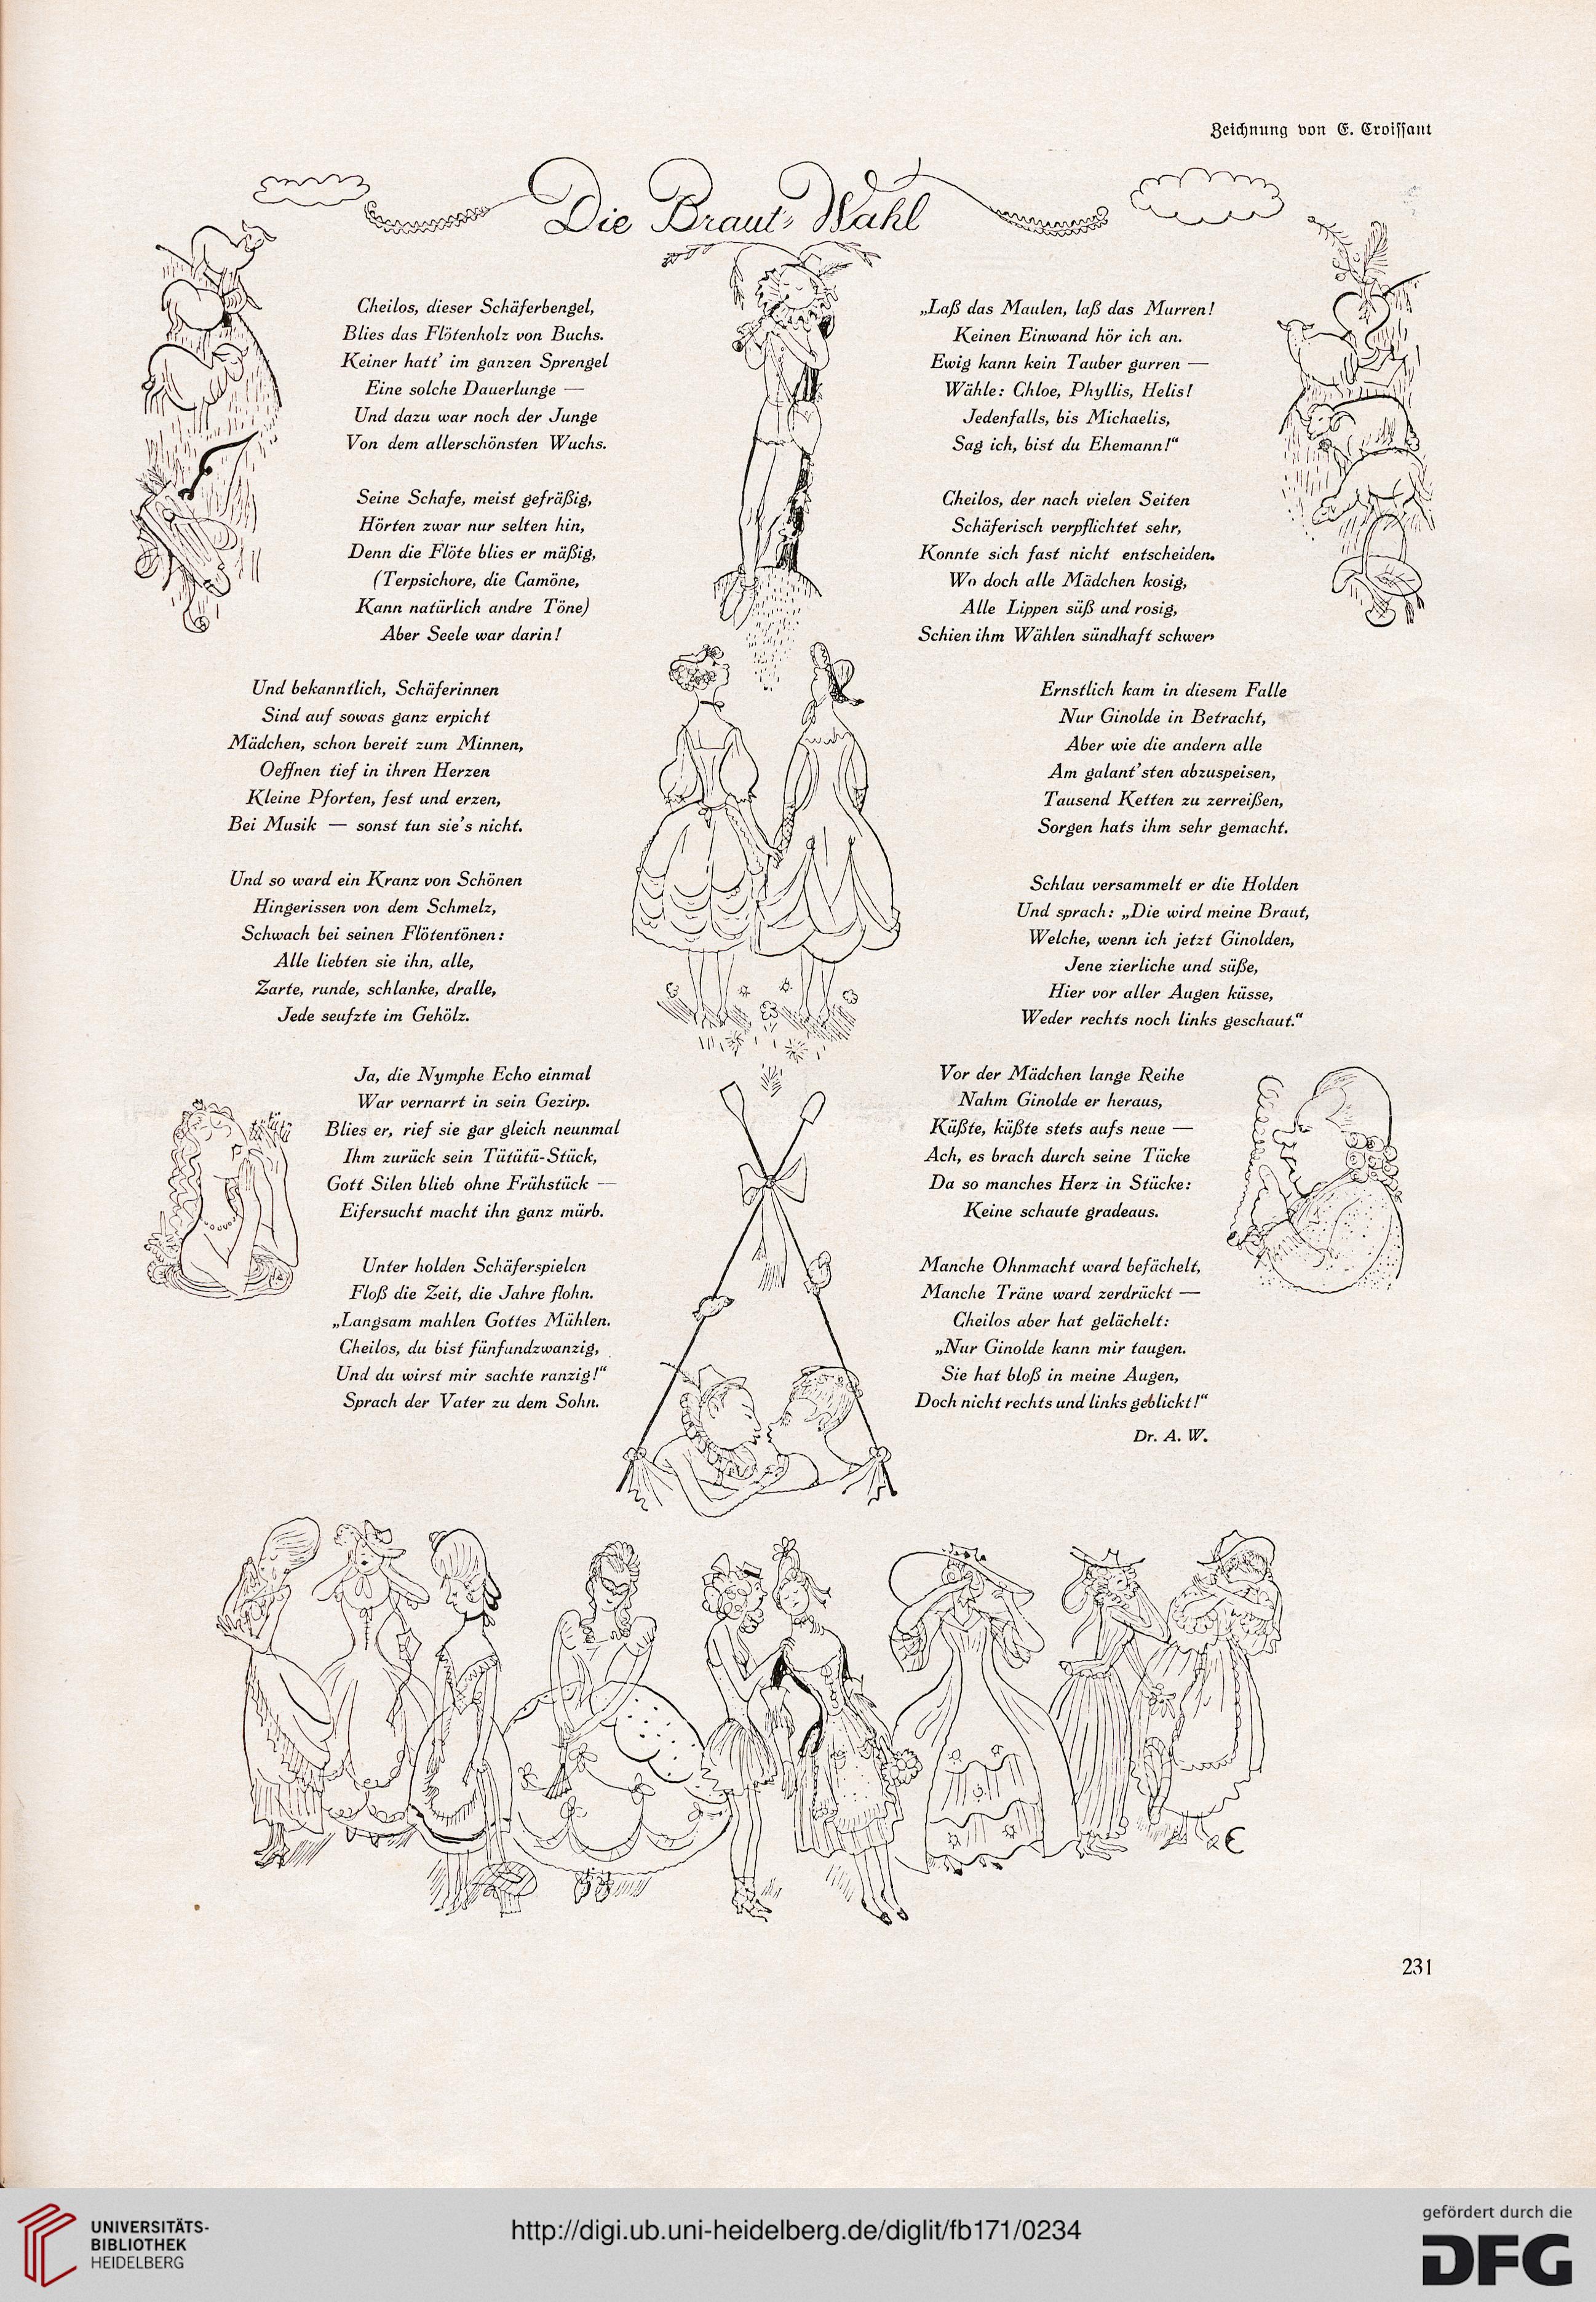 Zeichnung von E. Croissant
Die Braut-Wahl
Cheilos, dieser Schäferbengel,
Blies das Flötenholz von Buchs.
Keiner hatt' im ganzen Sprengel
Eine solche Dauerlunge —
Und dazu war noch der Junge
Von dem allerschönsten Wuchs.
Seine Schafe, meist gefräßig,
Hörten zwar nur selten hin,
Denn die Flöte blies er mäßig,
(Terpsichore, die Camöne,
Kann natürlich andre Töne)
Aber Seele war darin!
Und bekanntlich, Schäferinnen
Sind auf sowas ganz erpicht
Mädchen, schon bereit zum Minnen,
Oeffnen tief in ihren Herzen
Kleine Pforten, fest und erzen,
Bei Musik — sonst tun sie's nicht.
Und so ward ein Kranz von Schönen
Hingerissen von dem Schmelz,
Schwach bei seinen Flötentönen:
Alle liebten sie ihn, alle,
Zarte, runde, schlanke, dralle,
Jede seufzte im Gehölz.
Ja, die Nymphe Echo einmal
War vernarrt in sein Gezirp.
Blies er, rief sie gar gleich neunmal
Ihm zurück sein Tütütü-Stück,
Gott Silen blieb ohne Frühstück —
Eifersucht macht ihn ganz mürb.
tütütü
Unter holden Schäferspielen
Floß die Zeit, die Jahre flohn.
„Langsam mahlen Gottes Mühlen.
Cheilos, du bist fünfundzwanzig,
Und du wirst mir sachte ranzig!“
Sprach der Vater zu dem Sohn.
„Laß das Maulen, laß das Murren!
Keinen Einwand hör ich an.
Ewig kann kein Tauber gurren —
Wähle: Chloe, Phyllis, Helis!
Jedenfalls, bis Michaelis,
Sag ich, bist du Ehemann!“
Cheilos, der nach vielen Seiten
Schäferisch verpflichtet sehr,
Konnte sich fast nicht entscheiden.
Wo doch alle Mädchen kosig,
Alle Lippen süß und rosig,
Schien ihm Wählen sündhaft schwer.
Ernstlich kam in diesem Falle
Nur Ginolde in Betracht,
Aber wie die andern alle
Am galant'sten abzuspeisen,
Tausend Ketten zu zerreißen,
Sorgen hats ihm sehr gemacht.
Schlau versammelt er die Holden
Und sprach: „Die wird meine Braut,
Welche, wenn ich jetzt Ginolden,
Jene zierliche und süße,
Hier vor aller Augen küsse,
Weder rechts noch links geschaut.“
Vor der Mädchen lange Reihe
Nahm Ginolde er heraus,
Küßte, küßte stets aufs neue —
Ach, es brach durch seine Tücke
Da so manches Herz in Stücke:
Keine schaute gradeaus.
Manche Ohnmacht ward befächelt,
Manche Träne ward zerdrückt —
Cheilos aber hat gelächelt:
„Nur Ginolde kann mir taugen.
Sie hat bloß in meine Augen,
Doch nicht rechts und links geblickt!“
Dr. A. W.
E
231
UNIVERSITÄTS-
BIBLIOTHEK
HEIDELBERG
http://digi.ub.uni-heidelberg.de/diglit/fb171/0234
gefördert durch die
DFG